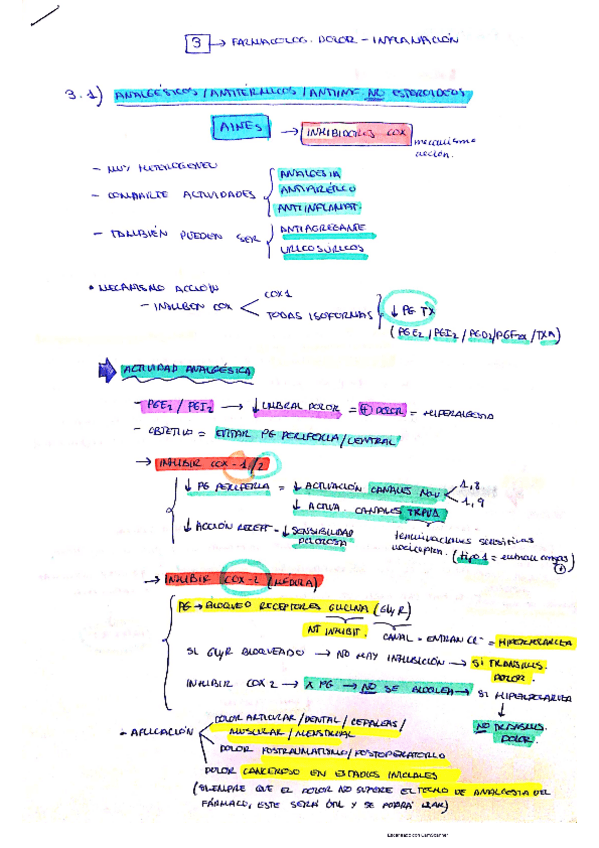 3 → FARMACOLOG. DOLOR - INFLAMACIÓN
3.1) ANALGÉSICOS / ANTITÉRMICOS / ANTIINF. NO ESTEROIDEOS
AINES → INHIBIDORES COX mecanismo acción.
- MUY HETEROGÉNEO
- COMPARTE ACTIVIDADES
ANALGESIA
ANTIPIRÉTICO
ANTIINFLAMAT.
- TAMBIÉN PUEDEN SER
ANTIAGREGANTE
URICOSÚRICOS
• MECANISMO ACCIÓN
- INHIBEN COX
COX1
TODAS ISOFORMAS
↓ PG TX
(PGE2 / PGI2 / PGD2 / PGF2α / TXA)
ACTIVIDAD ANALGÉSICA
- PGE2 / PGI2 → ↓ UMBRAL DOLOR = ⊕ DOLOR = HIPERALGESIA
- OBJETIVO = EVITAR PG PERIFERIA / CENTRAL
→ INHIBIR COX-1/2
↓ PG PERIFERIA = ↓ ACTIVACIÓN CANALES Nav 1,8
1,9
↓ ACTIVA. CANALES TRPV1
↓ ACCIÓN RECEPT = ↓ SENSIBILIDAD DOLOROSA
terminaciones sensitivas
nocicepton. (tipo 1 = entran cargas ⊕)
→ INHIBIR COX-2 (MÉDULA)
PG → BLOQUEO RECEPTORES GLICINA (GlyR)
NT INHIBIT. CANAL = ENTRAN Cl⁻ = HIPERPOLARICEA
SI GlyR BLOQUEADO → NO HAY INHIBICIÓN → SI TRANSMIS. DOLOR.
INHIBIR COX2 → X PG → NO SE BLOQUEA → SI HIPERPOLARIZA
↓
NO TRANSMIS. DOLOR.
- APLICACIÓN
DOLOR ARTICULAR / DENTAL / CEFALEAS /
MUSCULAR / MENSTRUAL
DOLOR POSTRAUMATISMO / POSTOPERATORIO
DOLOR CANCEROSO EN ESTADIOS INICIALES
(SIEMPRE QUE EL DOLOR NO SUPERE EL TECHO DE ANALGESIA DEL
FÁRMACO, ESTE SERÁ ÚTIL Y SE PODRÁ USAR)
Escaneado con CamScanner